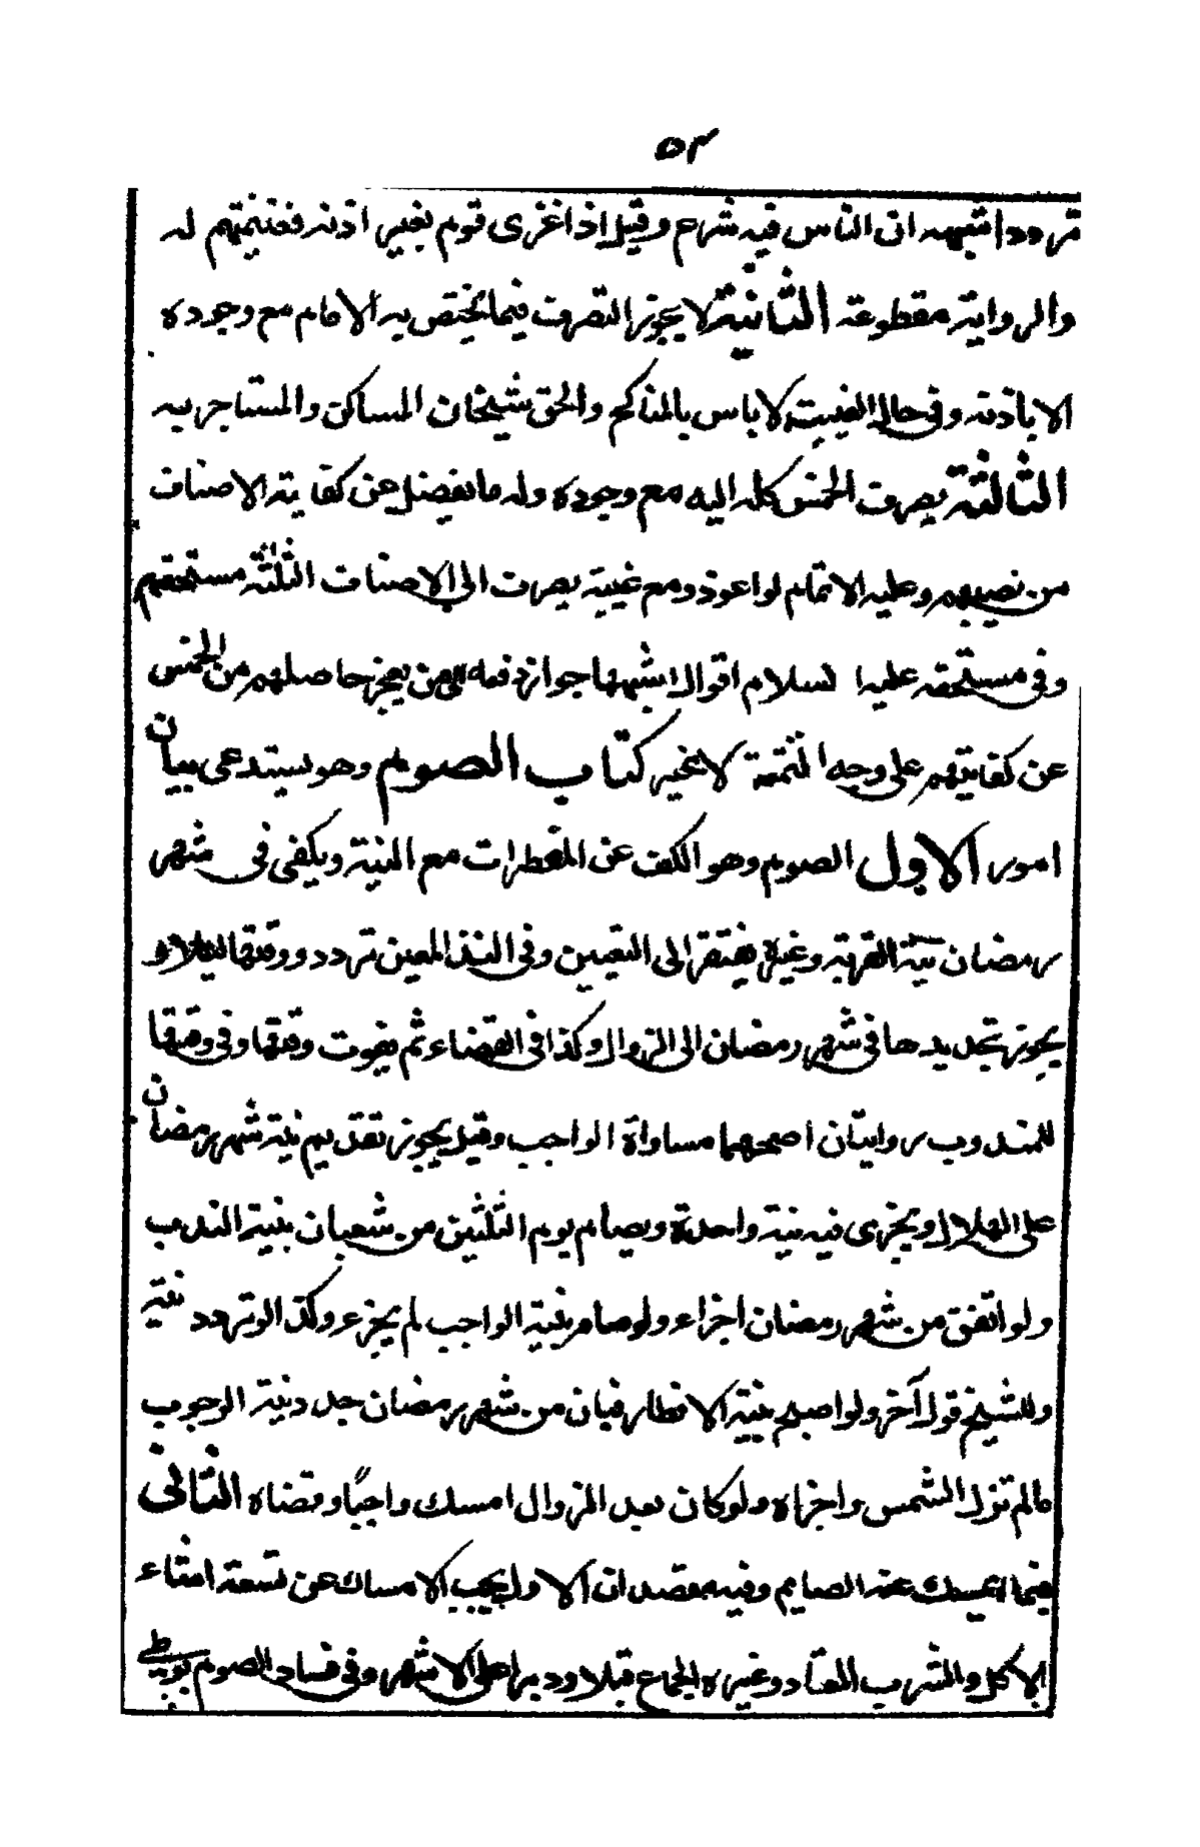 ٥٣
تردد اشبهه ان الناس فيه شرح وقيل اذا غزى قوم بغير اذنه فغنيمتهم له
والرواية مقطوعة الثانية لا يجوز التصرف فيما يختص به الامام مع وجوده
الا باذنه وفى حال الغيبة لا باس بالمناكح والحق شيخان المساكن والمتاجر به
الثالثة يصرف الخمس كله اليه مع وجوده وله ما يفضل عن كفاية الاصناف
من نصيبهم وعليه الاتمام لو اعوز ومع غيبته يصرف الى الاصناف الثلثة مستحقهم
وفى مستحقه عليه السلام اقوال اشبهها جواز دفعه الى من يعجز حاصلهم من الخمس
عن كفايتهم على وجه التتمة لا غير كتاب الصوم وهو يستدعى بيان
امور الاول الصوم وهو الكف عن المفطرات مع النية ويكفى فى شهر
رمضان نية القربة وغيره يفتقر الى التعيين وفى النذر المعين تردد ووقتها ليلا و
يجوز تجديدها فى شهر رمضان الى الزوال وكذا فى القضاء ثم يفوت وقتها وفى وقتها
للمندوب روايتان اصحهما مساواة الواجب وقيل يجوز تقديم نية شهر رمضان
على الهلال ويجزى فيه نية واحدة ويصام يوم الثلثين من شعبان بنية الندب
ولو اتفق من شهر رمضان اجزاء ولو صام بنية الواجب لم يجزء وكذا لو تردد نيته
وللشيخ قول آخر ولو اصبح بنية الافطار فبان من شهر رمضان جدد نية الوجوب
مالم تزل الشمس واجزاه ولو كان بعد الزوال امسك واجبًا وقضاه الثانى
فيما يمسك عنه الصايم وفيه مقصدان الاول يجب الامساك عن تسعة اشياء
الاكل والشرب المعتاد وغيره والجماع قبلا ودبرا على الاشهر وفى فساد الصوم بوطى